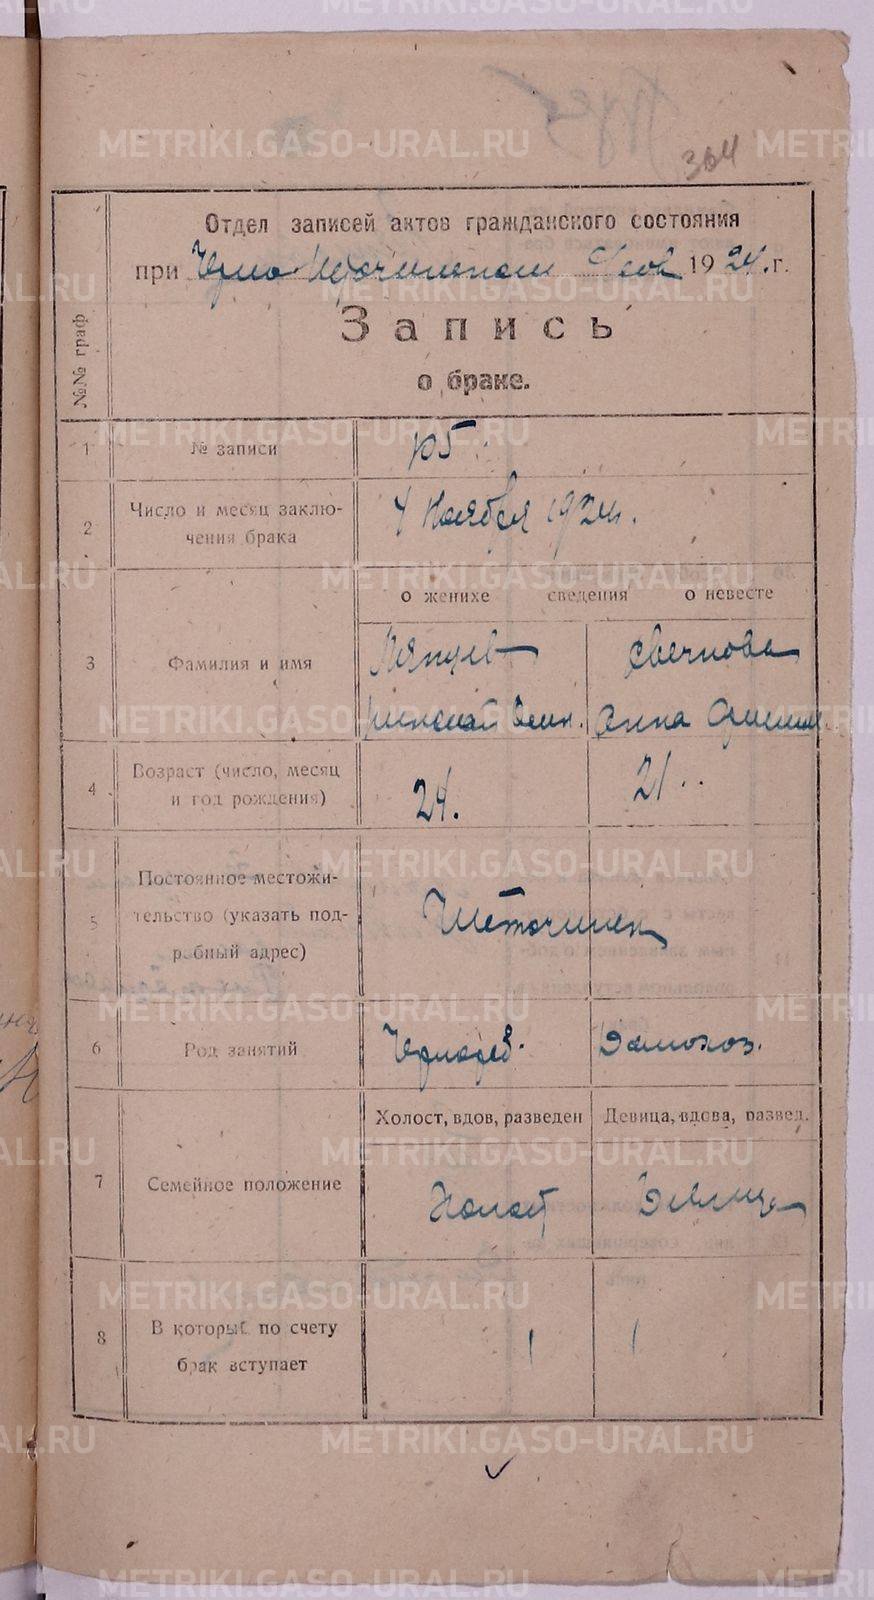 304
Отдел записей актов гражданского состояния
при Черно-Источинском 1924.г.
№№ граф
Запись
о браке.
1 № записи 105.
2 Число и месяц заклю-
чения брака
4 Ноября 1924г.
о женихе сведения о невесте
3 Фамилия и имя
Ляпцев Свечнова
Анна
4 Возраст (число, месяц
и год рождения)
24. 21..
5 Постоянное местожи-
тельство (указать под-
робный адрес)
6 Род занятий
Чернораб. Домохоз.
Холост, вдов, разведен Девица, вдова, развед.
7 Семейное положение
Холост Девица
8 В который по счету
брак вступает
1 1
METRIKI.GASO-URAL.RU